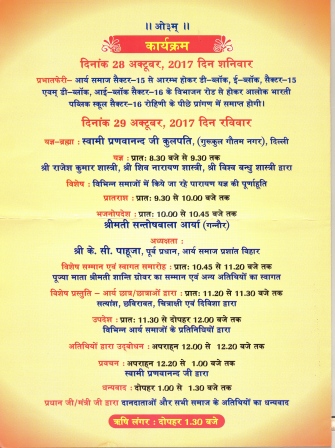 ॥ ओ३म् ॥
कार्यक्रम
दिनांक 28 अक्टूबर, 2017 दिन शनिवार
प्रभातफेरी– आर्य समाज सैक्टर–15 से आरम्भ होकर डी–ब्लॉक, ई–ब्लॉक, सैक्टर–15
एवम् डी–ब्लॉक, आई–ब्लॉक सैक्टर–16 के विभाजन रोड से होकर आलोक भारती
पब्लिक स्कूल सैक्टर–16 रोहिणी के पीछे प्रांगण में समाप्त होगी।
दिनांक 29 अक्टूबर, 2017 दिन रविवार
यज्ञ–ब्रह्मा : स्वामी प्रणवानन्द जी कुलपति, (गुरुकुल गौतम नगर), दिल्ली
यज्ञ : प्रातः 8.30 बजे से 9.30 तक
श्री राजेश कुमार शास्त्री, श्री शिव नारायण शास्त्री, श्री विश्व बन्धु शास्त्री द्वारा
विशेष : विभिन्न समाजों में किये जा रहे पारायण यज्ञ की पूर्णाहुति
प्रातराश : प्रातः 9.30 से 10.00 बजे तक
भजनोपदेश : प्रातः 10.00 से 10.45 बजे तक
श्रीमती सन्तोषबाला आर्या (गन्नौर)
अध्यक्षता :
श्री के. सी. पाहूजा, पूर्व प्रधान, आर्य समाज प्रशांत विहार
विशेष सम्मान एवं स्वागत समारोह : प्रातः 10.45 से 11.20 बजे तक
पूज्या माता श्रीमती शान्ति ग्रोवर का सम्मान एवं अन्य अतिथियों का स्वागत
विशेष प्रस्तुति – आर्य छात्र/छात्राओं द्वारा : प्रातः 11.20 से 11.30 बजे तक
सत्यांश, छविरावत, चित्राक्षी एवं दिविशा द्वारा
उपदेश : प्रातः 11.30 से दोपहर 12.00 बजे तक
विभिन्न आर्य समाजों के प्रतिनिधियों द्वारा
अतिथियों द्वारा उद्बोधन : अपराहन 12.00 से 12.20 बजे तक
प्रवचन : अपराहन 12.20 से 1.00 बजे तक
स्वामी प्रणवानन्द जी द्वारा
धन्यवाद : दोपहर 1.00 से 1.30 बजे तक
प्रधान जी/मंत्री जी द्वारा दानदाताओं और सभी समाज के अतिथियों का धन्यवाद
ऋषि लंगर : दोपहर 1.30 बजे